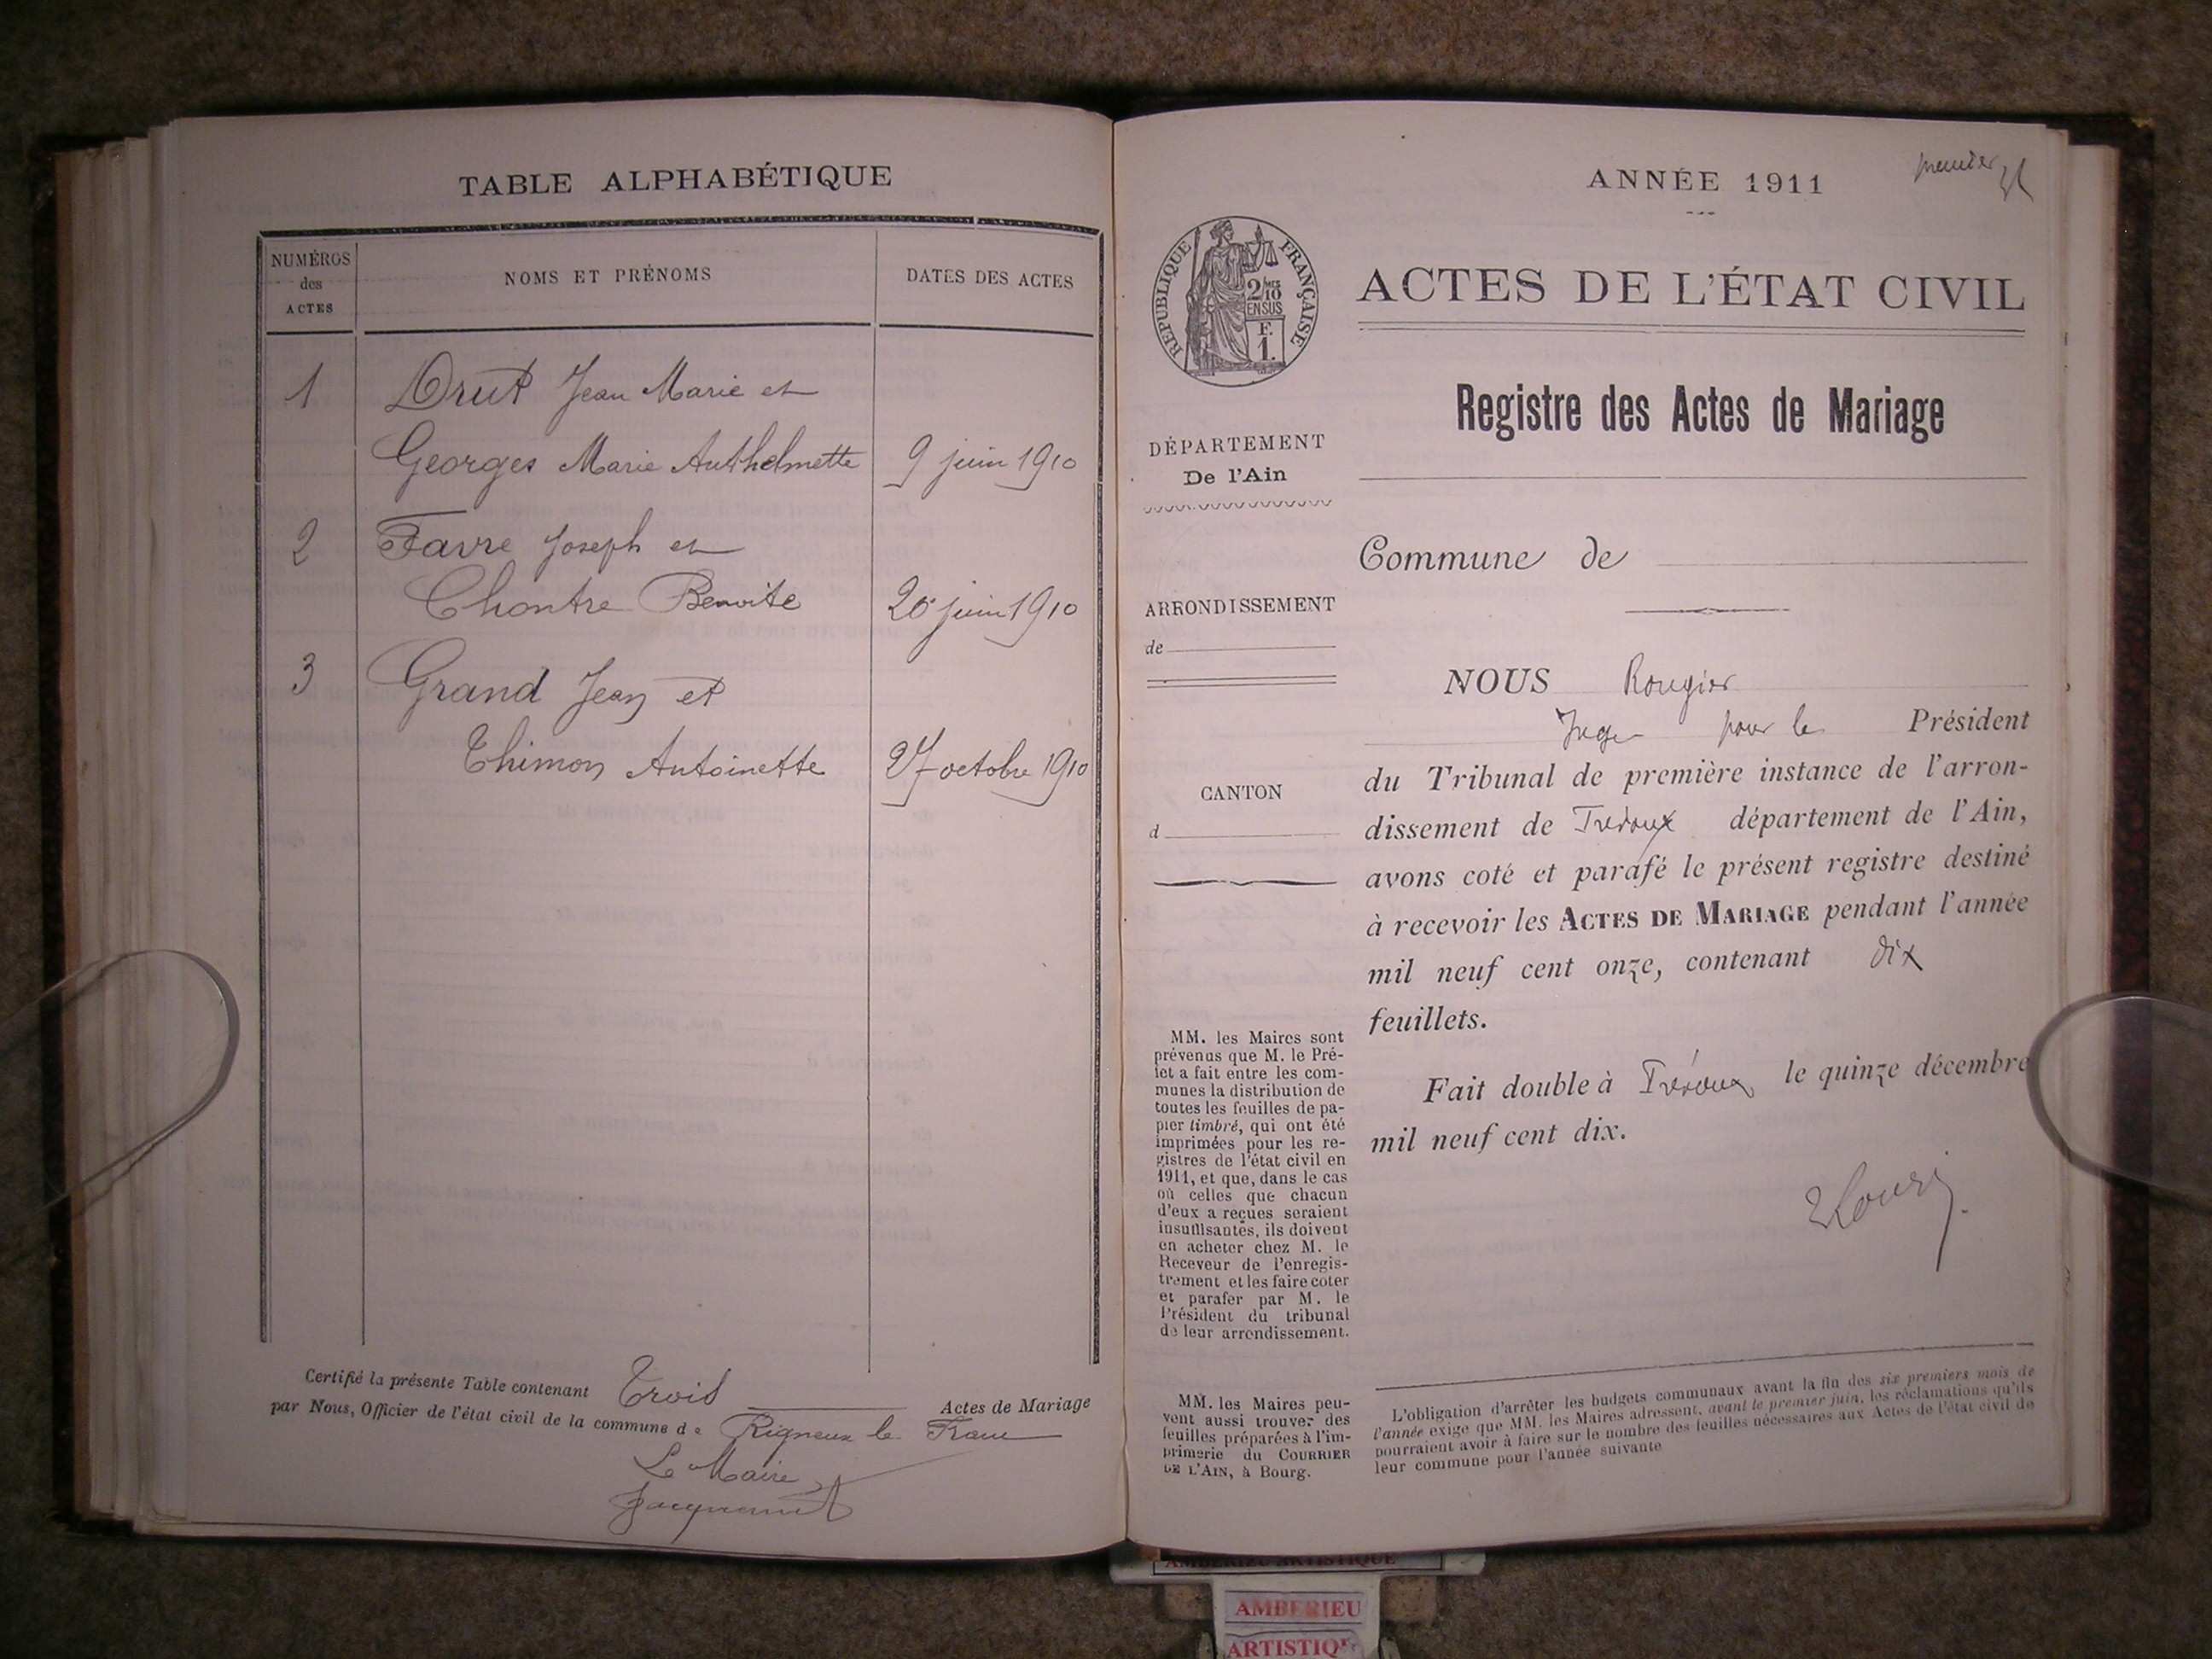 TABLE ALPHABÉTIQUE
NUMÉROS
des
ACTES
NOMS ET PRÉNOMS
DATES DES ACTES
1
Drut Jean Marie et
Georges Marie Anthelmette
9 juin 1910
2
Favre Joseph et
Chontre Benoite
20 juin 1910
3
Grand Jean et
Thimon Antoinette
27 octobre 1910
Certifié la présente Table contenant Trois Actes de Mariage
par Nous, Officier de l'état civil de la commune de Rigneux le Franc
Le Maire
ANNÉE 1911
premier
RÉPUBLIQUE FRANÇAISE
2/10
EN SUS
F.
1.
ACTES DE L'ÉTAT CIVIL
Registre des Actes de Mariage
DÉPARTEMENT
De l'Ain
ARRONDISSEMENT
de
CANTON
d
MM. les Maires sont
prévenus que M. le Pré-
fet a fait entre les com-
munes la distribution de
toutes les feuilles de pa-
pier timbré, qui ont été
imprimées pour les re-
gistres de l'état civil en
1911, et que, dans le cas
où celles que chacun
d'eux a reçues seraient
insuffisantes, ils doivent
en acheter chez M. le
Receveur de l'enregis-
trement et les faire coter
et parafer par M. le
Président du tribunal
de leur arrondissement.
MM. les Maires peu-
vent aussi trouver des
feuilles préparées à l'im-
primerie du COURRIER
DE L'AIN, à Bourg.
Commune de
NOUS Rougier
Juge pour le Président
du Tribunal de première instance de l'arron-
dissement de Trévoux département de l'Ain,
avons coté et parafé le présent registre destiné
à recevoir les ACTES DE MARIAGE pendant l'année
mil neuf cent onze, contenant dix
feuillets.
Fait double à Trévoux le quinze décembre
mil neuf cent dix.
L'obligation d'arrêter les budgets communaux avant la fin des six premiers mois de
l'année exige que MM. les Maires adressent, avant le premier juin, les réclamations qu'ils
pourraient avoir à faire sur le nombre des feuilles nécessaires aux Actes de l'état civil de
leur commune pour l'année suivante
AMBERIEU ARTISTIQUE
AMBERIEU
ARTISTIQU